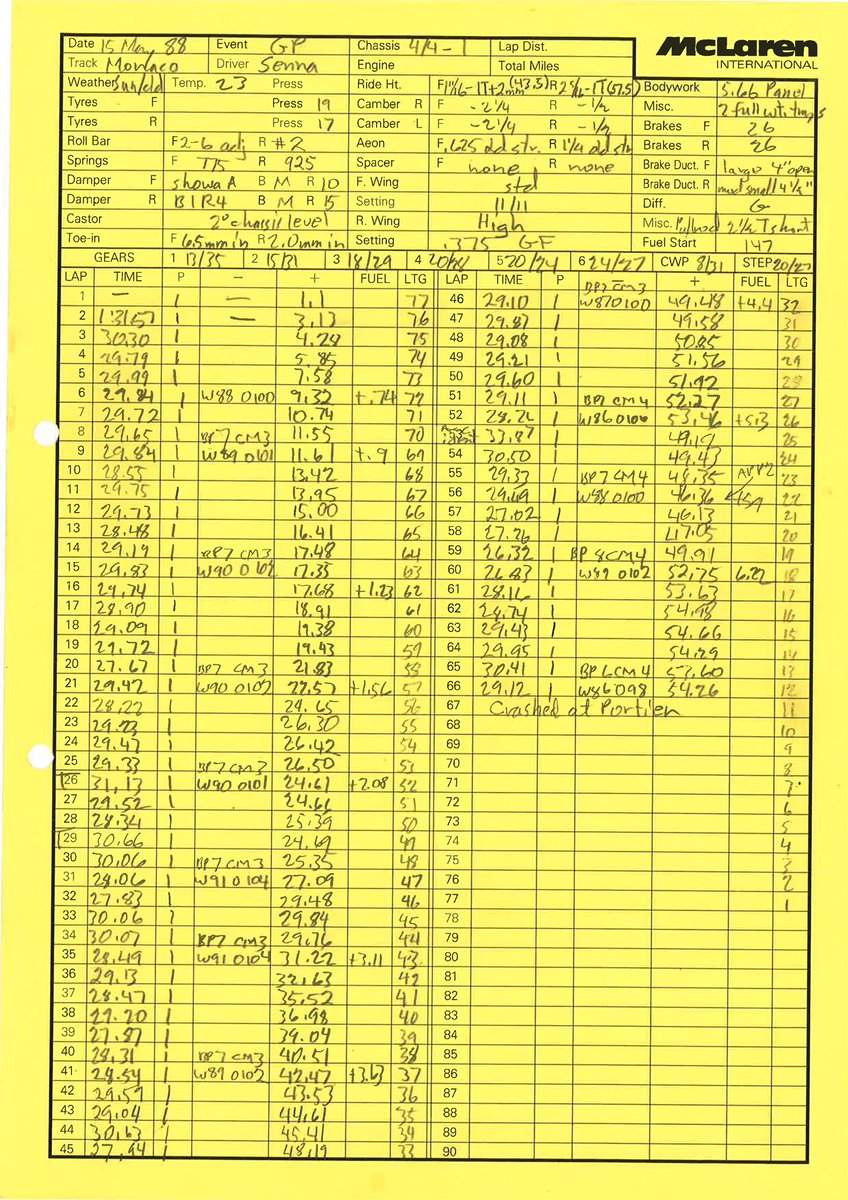 McLaren
INTERNATIONAL
Date 15 May 88 Event GP Chassis 4/4-1 Lap Dist.
Track Monaco Driver Senna Engine Total Miles
Weather Sun/cld Temp. 23 Press Ride Ht. F R Bodywork 5.66 Panel
Tyres F Press 19 Camber R F -2 1/4 R -1/2 Misc.
Tyres R Press 17 Camber L F -2 1/4 R -1/2 Brakes F 26
Roll Bar F 2-6 adj R #2 Aeon F .625 old str. R 1 1/4 old str Brakes R 26
Springs F T75 R 925 Spacer F none R none Brake Duct. F large 4" open
Damper F showa A B M R 10 F. Wing std Brake Duct. R mod small 4 1/2"
Damper R B1R4 B M R 15 Setting 11/11 Diff. G
Castor 2° chassis level R. Wing High Misc. Pullrod 2 1/2 T short
Toe-in F 6.5mm in R 2.0mm in Setting .375 GF Fuel Start 147
GEARS 1 13/35 2 15/31 3 18/29 4 20/28 5 20/24 6 24/27 CWP 8/31 STEP 20/27
LAP TIME P - + FUEL LTG LAP TIME P - + FUEL LTG
1 — 1 — 1.1 77 46 29.10 1 BP7 CM3 W87 0100 49.48 +4.4 32
2 1:31.57 1 — 3.13 76 47 29.87 1 49.58 31
3 30.30 1 4.24 75 48 29.08 1 50.85 30
4 29.79 1 5.85 74 49 29.21 1 51.56 29
5 29.99 1 7.58 73 50 29.60 1 51.92 28
6 29.84 1 W88 0100 9.32 +.74 72 51 29.11 1 BP7 CM4 52.27 27
7 29.72 1 10.74 71 52 28.22 1 W86 0100 53.46 +5.3 26
8 29.65 1 BP7 CM3 11.55 70 33.87 49.19 25
9 29.84 1 W89 0101 11.61 +.9 69 54 30.50 1 49.43 24
10 28.55 1 13.42 68 55 29.33 1 BP7 CM4 48.35 23
11 29.75 1 13.95 67 56 29.69 1 W88 0100 46.36 22
12 29.73 1 15.00 66 57 27.02 1 46.13 21
13 28.48 1 16.41 65 58 27.26 1 47.05 20
14 29.19 1 BP7 CM3 17.48 64 59 26.32 1 BP 8 CM4 49.91 19
15 29.83 1 W90 0102 17.35 63 60 26.83 1 W89 0102 52.75 6.22 18
16 29.74 1 17.68 +1.23 62 61 28.16 1 53.63 17
17 28.90 1 18.91 61 62 28.74 1 54.98 16
18 29.09 1 19.38 60 63 29.43 1 54.66 15
19 29.72 1 19.43 59 64 29.95 1 54.29 14
20 27.67 1 BP7 CM3 21.83 58 65 30.41 1 BP6 CM4 53.60 13
21 29.42 1 W90 0102 22.57 +1.56 57 66 29.12 1 W86 098 54.26 12
22 28.22 1 24.65 56 67 Crashed at Portier 11
23 29.23 1 26.30 55 68 10
24 29.47 1 26.42 54 69 9
25 29.33 1 BP7 CM3 26.50 53 70 8
26 31.13 1 W90 0101 24.61 +2.08 52 71 7
27 29.52 1 24.61 51 72 6
28 28.34 1 25.39 50 73 5
29 30.66 1 24.69 49 74 4
30 30.06 1 BP7 CM3 25.35 48 75 3
31 28.06 1 W91 0104 27.09 47 76 2
32 27.83 1 29.48 46 77 1
33 30.06 1 29.84 45 78
34 30.07 1 BP7 CM3 29.76 44 79
35 28.49 1 W91 0104 31.22 +3.11 43 80
36 29.13 1 32.63 42 81
37 28.47 1 35.52 41 82
38 29.20 1 36.98 40 83
39 27.87 1 39.04 39 84
40 28.31 1 BP7 CM3 40.51 38 85
41 28.54 1 W89 0102 42.47 +3.63 37 86
42 29.59 1 43.53 36 87
43 29.04 1 44.61 35 88
44 30.63 1 45.41 34 89
45 27.94 1 48.19 33 90